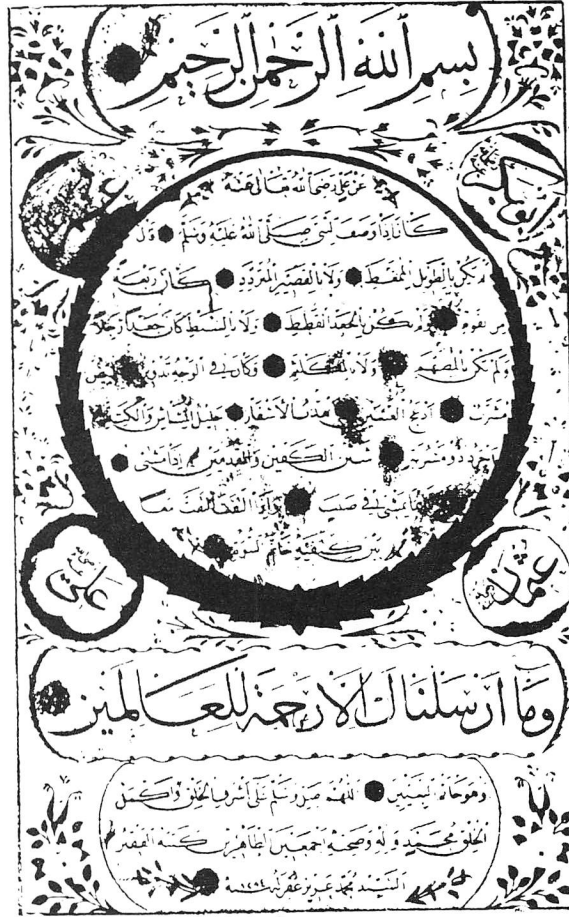 بِسْمِ ٱللّٰهِ ٱلرَّحْمٰنِ ٱلرَّحِيْمِ
ابوبكر
عمر
عَنْ عَلِيٍّ رَضِيَ اللّٰهُ تَعَالٰى عَنْهُ
كَانَ اِذَا وَصَفَ النَّبِيَّ صَلَّى اللّٰهُ عَلَيْهِ وَسَلَّمَ قَالَ
لَمْ يَكُنْ بِالطَّوِيلِ الْمُمَّغِطِ وَلَا بِالْقَصِيرِ الْمُتَرَدِّدِ كَانَ رَبْعَةً
مِنَ الْقَوْمِ وَلَمْ يَكُنْ بِالْجَعْدِ الْقَطِطِ وَلَا بِالسَّبِطِ كَانَ جَعْدًا رَجِلًا
وَلَمْ يَكُنْ بِالْمُطَهَّمِ وَلَا بِالْمُكَلْثَمِ وَكَانَ فِي الْوَجْهِ تَدْوِيرٌ اَبْيَضُ
مُشْرَبٌ اَدْعَجُ الْعَيْنَيْنِ اَهْدَبُ الْاَشْفَارِ جَلِيلُ الْمُشَاشِ وَالْكَتَدِ
اَجْرَدُ ذُو مَسْرُبَةٍ شَثْنُ الْكَفَّيْنِ وَالْقَدَمَيْنِ اِذَا مَشٰى
يَمْشِي فِي صَبَبٍ وَاِذَا الْتَفَتَ الْتَفَتَ مَعًا
بَيْنَ كَتِفَيْهِ خَاتَمُ النُّبُوَّةِ
عثمان
على
وَمَا اَرْسَلْنَاكَ اِلَّا رَحْمَةً لِلْعَالَمِيْنَ
وَهُوَ خَاتَمُ النَّبِيِّينَ اَللّٰهُمَّ صَلِّ وَسَلِّمْ عَلٰى اَشْرَفِ الْخَلْقِ وَاَكْمَلِ
الْخَلْقِ مُحَمَّدٍ وَاٰلِهِ وَصَحْبِهِ اَجْمَعِينَ الطَّاهِرِينَ كَتَبَهُ الْفَقِيرُ
السَّيِّد مُحَمَّد عَزِيز غُفِرَ لَهُ سنه